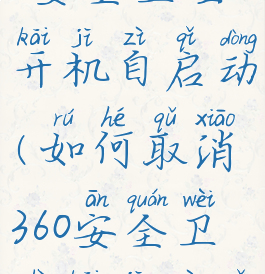 kāi jī zì qǐ dòng
开机自启动
rú hé qǔ xiāo
(如何取消
ān quán wèi
360安全卫